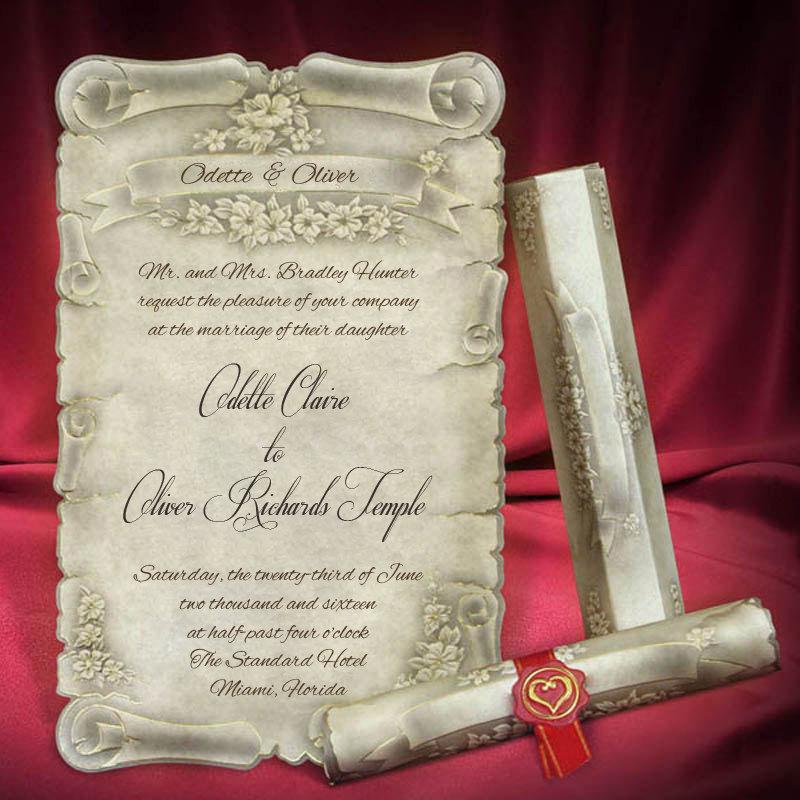 Odette & Oliver
Mr. and Mrs. Bradley Hunter
request the pleasure of your company
at the marriage of their daughter
Odette Claire
to
Oliver Richards Temple
Saturday, the twenty-third of June
two thousand and sixteen
at half-past four o'clock
The Standard Hotel
Miami, Florida